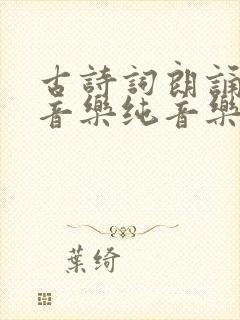 古詩詞朗誦
音樂纯音樂
葉绮